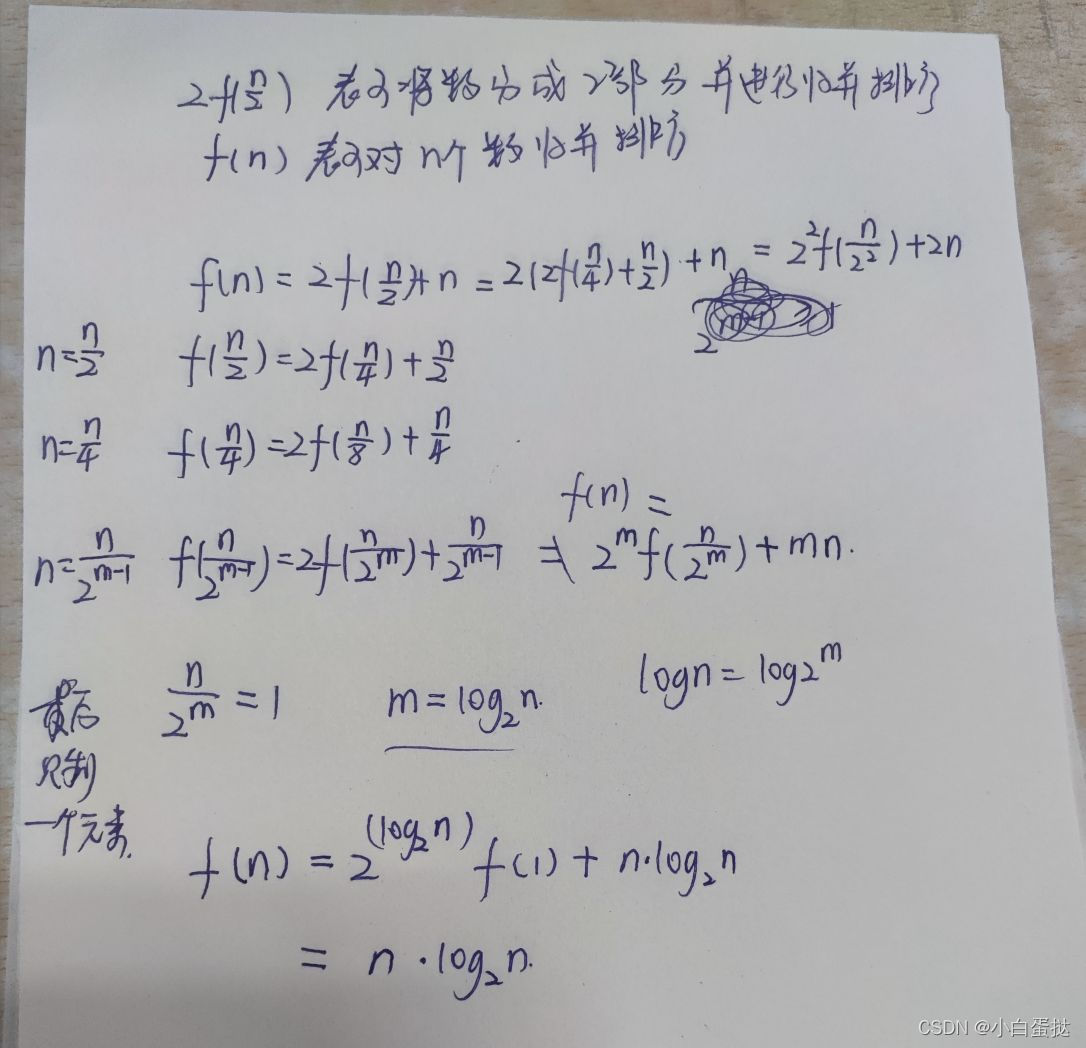 2f(n/2) 表示将数分成2部分并进行归并排序
f(n) 表示对n个数归并排序
f(n) = 2f(n/2)+n = 2(2f(n/4)+n/2)+n = 2^2f(n/2^2)+2n
n=n/2 f(n/2)=2f(n/4)+n/2
n=n/4 f(n/4)=2f(n/8)+n/4
f(n) =
n=n/2^(m-1) f(n/2^(m-1))=2f(n/2^m)+n/2^(m-1) ⇒ 2^m f(n/2^m)+mn.
最后 n/2^m = 1 m = log₂n. logn = log2^m
只剩
一个元素.
f(n) = 2^(log₂n) f(1) + n·log₂n
= n·log₂n.
CSDN @小白蛋挞